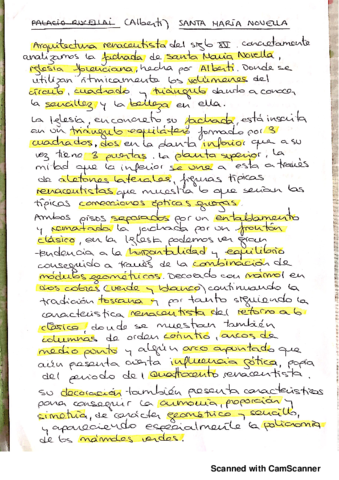 PALACIO RUCELLAI (Alberti) SANTA MARÍA NOVELLA
Arquitectura renacentista del siglo XV. concretamente
analizamos la fachada de Santa María Novella,
iglesia florenciana, hecha por Alberti. Donde se
utilizan rítmicamente los volúmenes del
círculo, cuadrado y triángulo dando a conocer
la sencillez y la belleza en ella.
La Iglesia, en concreto su fachada, está inscrita
en un triángulo equilátero formado por 3
cuadrados, dos en la planta inferior que a su
vez tiene 3 puertas. La planta superior, la
mitad que la inferior se une a esta a través
de aletones laterales, figuras típicas
renacentistas que muestra lo que serían las
típicas correcciones ópticas griegas.
Ambos pisos separados por un entablamento
y rematada la fachada por un frontón
clásico, en la Iglesia podemos ver gran
tendencia a la horizontalidad y equilibrio
conseguido a través de la combinación de
módulos geométricos. Decorado con mármol en
dos colores (verde y blanco) continuando la
tradición toscana y por tanto siguiendo la
característica renacentista del retorno a lo
clásico, donde se muestran también
columnas de orden corintio, arcos de
medio punto y algún arco apuntado que
aún presenta cierta influencia gótica, propia
del periodo del quattrocento renacentista.
Su decoración también presenta características
para conseguir la armonía, proporción y
simetría, de carácter geométrico y sencillo,
y apareciendo especialmente la policromía
de los mármoles verdes.
Scanned with CamScanner